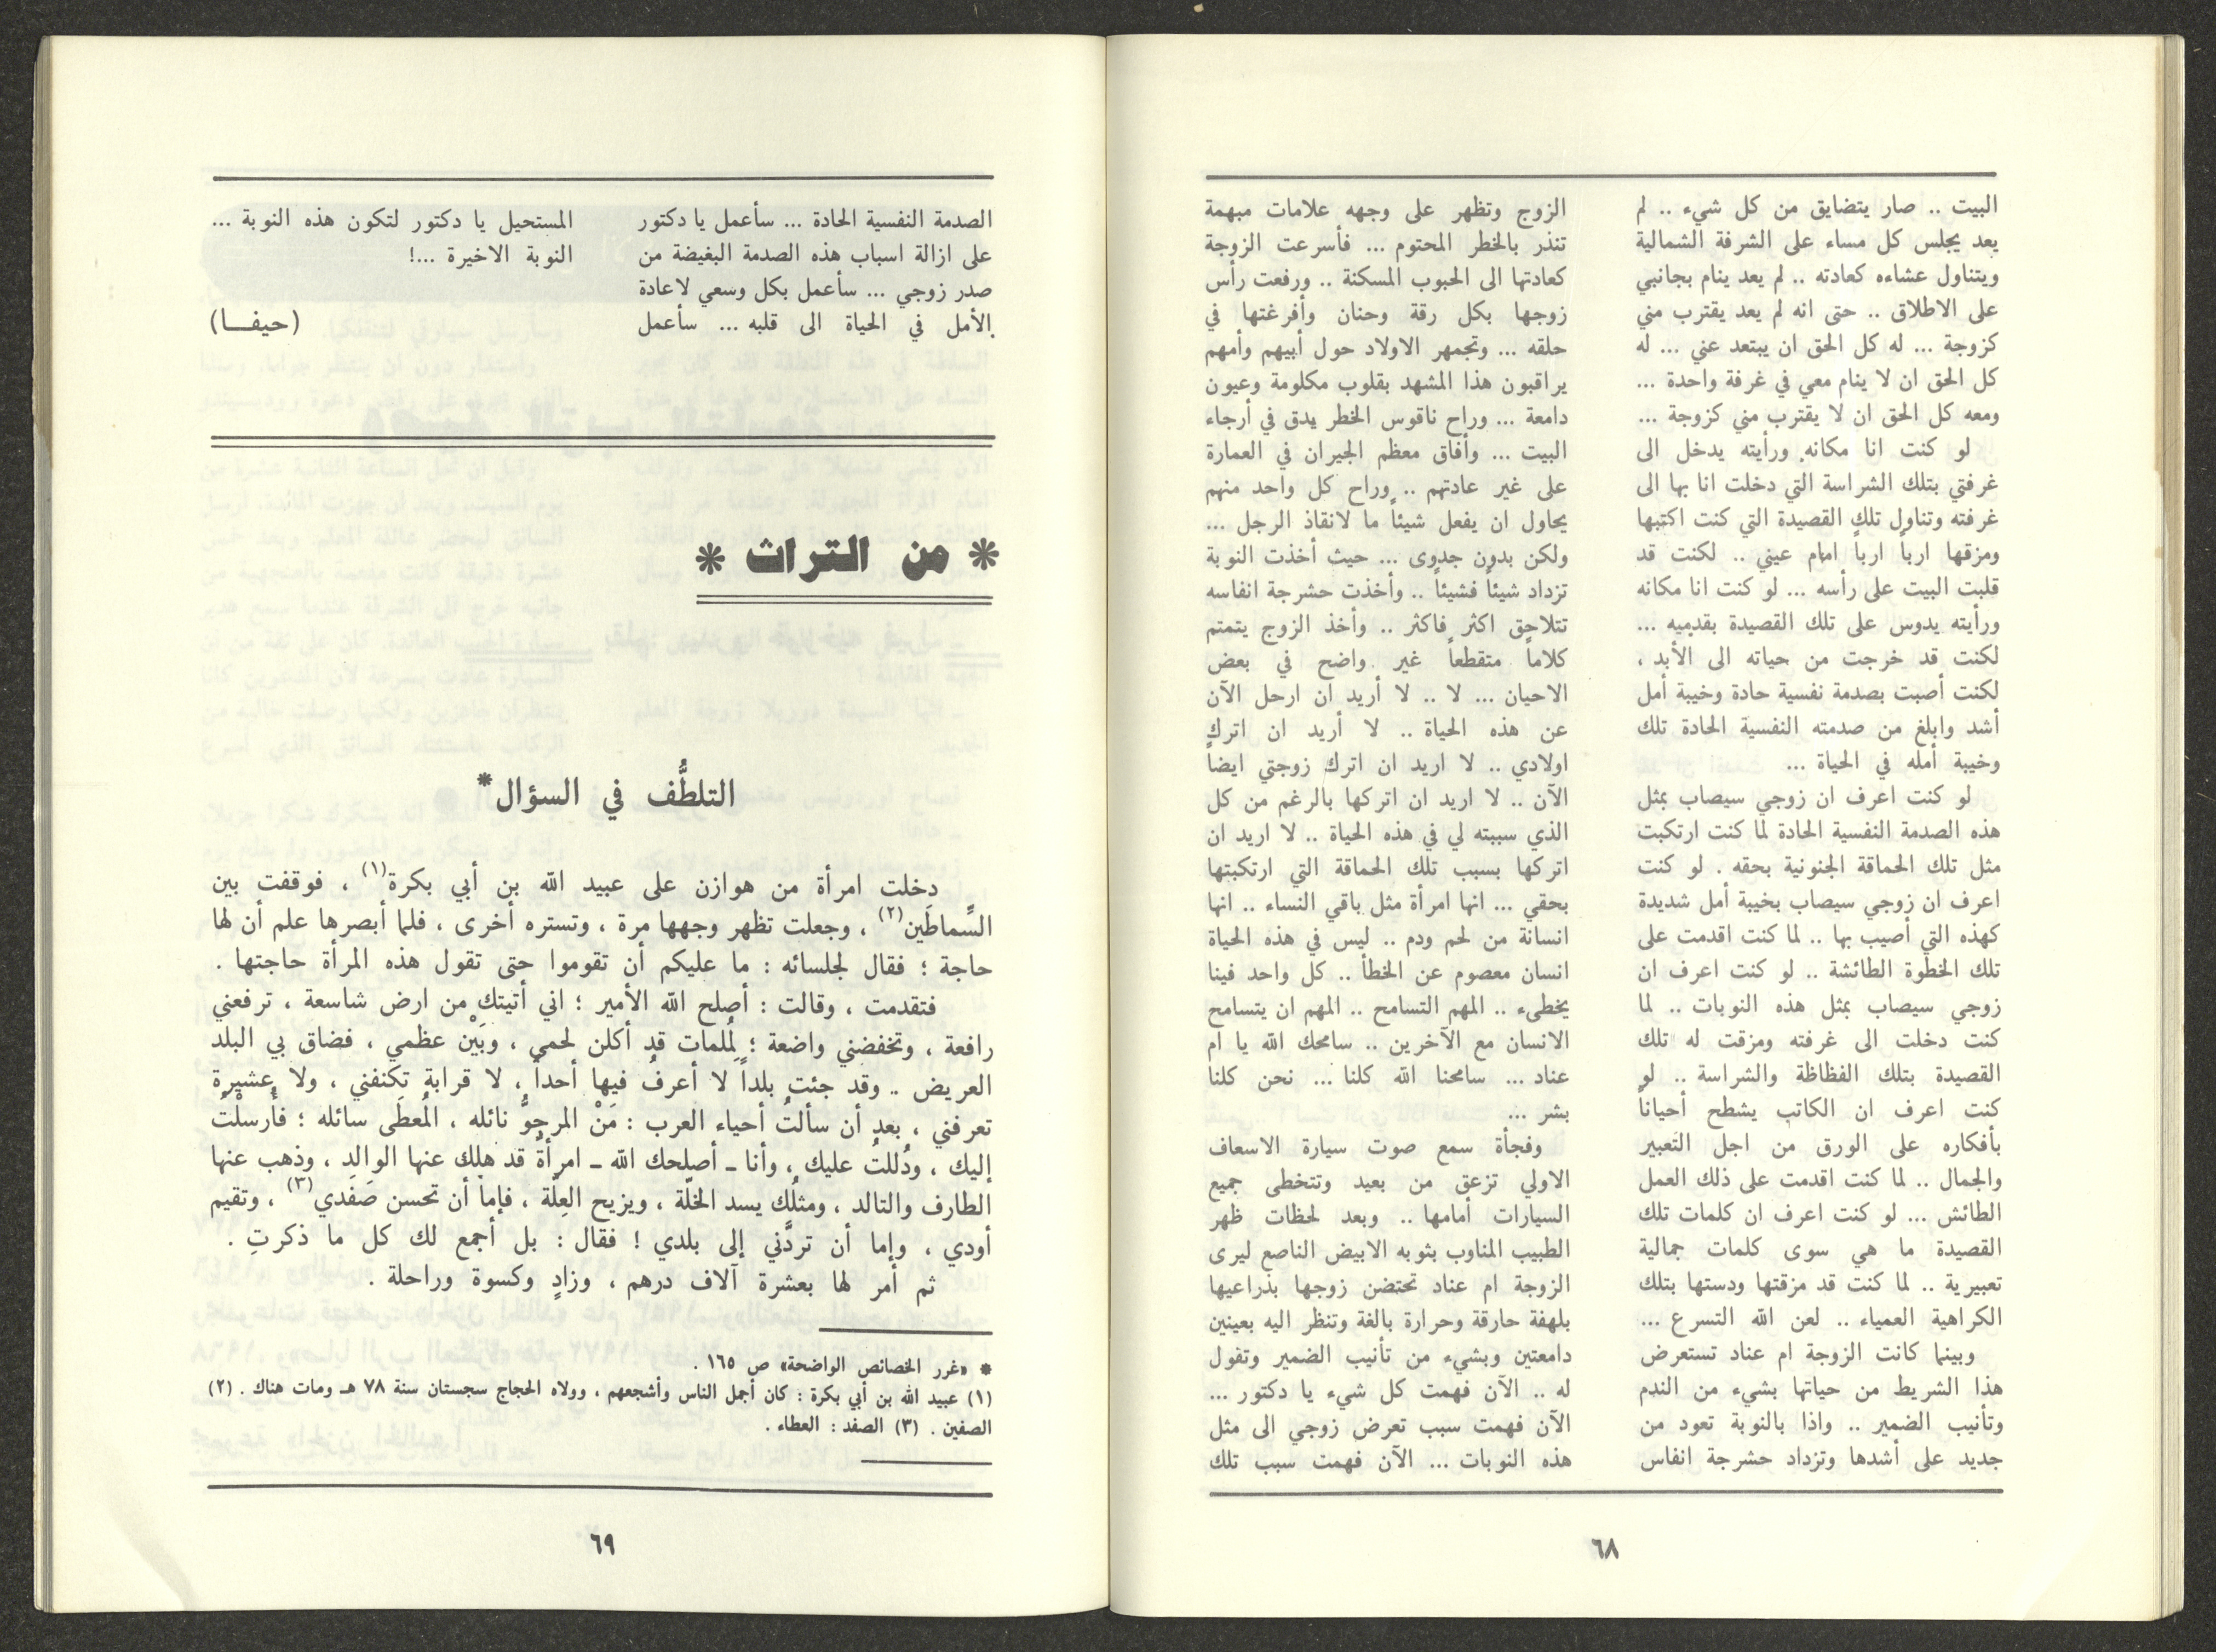 البيت .. صار يتضايق من كل شيء .. لم
يعد يجلس كل مساء على الشرفة الشمالية
ويتناول عشاءه كعادته .. لم يعد ينام بجانبي
على الاطلاق .. حتى انه لم يعد يقترب مني
كزوجة ... له كل الحق ان يبتعد عني ... له
كل الحق ان لا ينام معي في غرفة واحدة ...
ومعه كل الحق ان لا يقترب مني كزوجة ...
لو كنت انا مكانه ورأيته يدخل الى
غرفتي بتلك الشراسة التي دخلت انا بها الى
غرفته وتناول تلك القصيدة التي كنت اكتبها
ومزقها ارباً ارباً امام عيني .. لكنت قد
قلبت البيت على رأسه ... لو كنت انا مكانه
ورأيته يدوس على تلك القصيدة بقدميه ...
لكنت قد خرجت من حياته الى الأبد ،
لكنت أصبت بصدمة نفسية حادة وخيبة أمل
أشد وابلغ من صدمته النفسية الحادة تلك
وخيبة أمله في الحياة ...
لو كنت اعرف ان زوجي سيصاب بمثل
هذه الصدمة النفسية الحادة لما كنت ارتكبت
مثل تلك الحماقة الجنونية بحقه . لو كنت
اعرف ان زوجي سيصاب بخيبة أمل شديدة
كهذه التي أصيب بها .. لما كنت اقدمت على
تلك الخطوة الطائشة .. لو كنت اعرف ان
زوجي سيصاب بمثل هذه النوبات .. لما
كنت دخلت الى غرفته ومزقت له تلك
القصيدة بتلك الفظاظة والشراسة .. لو
كنت اعرف ان الكاتب يشطح أحياناً
بأفكاره على الورق من اجل التعبير
والجمال .. لما كنت اقدمت على ذلك العمل
الطائش ... لو كنت اعرف ان كلمات تلك
القصيدة ما هي سوى كلمات جمالية
تعبيرية .. لما كنت قد مزقتها ودستها بتلك
الكراهية العمياء .. لعن الله التسرع ...
وبينما كانت الزوجة ام عناد تستعرض
هذا الشريط من حياتها بشيء من الندم
وتأنيب الضمير .. واذا بالنوبة تعود من
جديد على أشدها وتزداد حشرجة انفاس
الزوج وتظهر على وجهه علامات مبهمة
تنذر بالخطر المحتوم ... فأسرعت الزوجة
كعادتها الى الحبوب المسكنة .. ورفعت رأس
زوجها بكل رقة وحنان وأفرغتها في
حلقه ... وتجمهر الاولاد حول أبيهم وأمهم
يراقبون هذا المشهد بقلوب مكلومة وعيون
دامعة ... وراح ناقوس الخطر يدق في أرجاء
البيت ... وأفاق معظم الجيران في العمارة
على غير عادتهم .. وراح كل واحد منهم
يحاول ان يفعل شيئاً ما لانقاذ الرجل ...
ولكن بدون جدوى ... حيث أخذت النوبة
تزداد شيئاً فشيئاً .. وأخذت حشرجة انفاسه
تتلاحق اكثر فاكثر .. وأخذ الزوج يتمتم
كلاماً متقطعاً غير واضح في بعض
الاحيان ... لا .. لا أريد ان ارحل الآن
عن هذه الحياة .. لا أريد ان اترك
اولادي .. لا اريد ان اترك زوجتي ايضاً
الآن .. لا اريد ان اتركها بالرغم من كل
الذي سببته لي في هذه الحياة .. لا اريد ان
اتركها بسبب تلك الحماقة التي ارتكبتها
بحقي ... انها امرأة مثل باقي النساء .. انها
انسانة من لحم ودم .. ليس في هذه الحياة
انسان معصوم عن الخطأ .. كل واحد فينا
يخطىء .. المهم التسامح .. المهم ان يتسامح
الانسان مع الآخرين .. سامحك الله يا ام
عناد ... سامحنا الله كلنا ... نحن كلنا
بشر ...
وفجأة سمع صوت سيارة الاسعاف
الاولي تزعق من بعيد وتتخطى جميع
السيارات أمامها .. وبعد لحظات ظهر
الطبيب المناوب بثوبه الابيض الناصع ليرى
الزوجة ام عناد تحتضن زوجها بذراعيها
بلهفة حارقة وحرارة بالغة وتنظر اليه بعينين
دامعتين وبشيء من تأنيب الضمير وتقول
له .. الآن فهمت كل شيء يا دكتور ...
الآن فهمت سبب تعرض زوجي الى مثل
هذه النوبات ... الآن فهمت سبب تلك
٦٨
الصدمة النفسية الحادة ... سأعمل يا دكتور
على ازالة اسباب هذه الصدمة البغيضة من
صدر زوجي ... سأعمل بكل وسعي لاعادة
الأمل في الحياة الى قلبه ... سأعمل
المستحيل يا دكتور لتكون هذه النوبة ...
النوبة الاخيرة ...!
(حيفـا)
* من التراث *
التلطُّف في السؤال*
دخلت امرأة من هوازن على عبيد الله بن أبي بكرة(١) ، فوقفت بين
السِّماطَين(٢) ، وجعلت تظهر وجهها مرة ، وتستره أخرى ، فلما أبصرها علم أن لها
حاجة ؛ فقال لجلسائه : ما عليكم أن تقوموا حتى تقول هذه المرأة حاجتها .
فتقدمت ، وقالت : أصلح الله الأمير ؛ اني أتيتك من ارض شاسعة ، ترفعني
رافعة ، وتخفضني واضعة ؛ لِمُلمات قد أكلن لحمي ، وبَيْن عظمي ، فضاق بي البلد
العريض .. وقد جئت بلداً لا أعرفُ فيها أحداً ، لا قرابة تكنفني ، ولا عشيرة
تعرفني ، بعد أن سألتُ أحياء العرب : مَنْ المرجوُّ نائله ، المُعطَى سائله ؛ فأُرسلْتُ
إليك ، ودُللتُ عليك ، وأنا ـ أصلحك الله ـ امرأةٌ قد هلك عنها الوالد ، وذهب عنها
الطارف والتالد ، ومثلُك يسد الخلّة ، ويزيح العِلّة ، فإما أن تحسن صَفَدي(٣) ، وتقيم
أودي ، وإما أن تردَّني إلى بلدي ! فقال : بل أجمع لك كل ما ذكرتِ .
ثم أمر لها بعشرة آلاف درهم ، وزادٍ وكسوة وراحلة .
* «غرر الخصائص الواضحة» ص ١٦٥ .
(١) عبيد الله بن أبي بكرة : كان أجمل الناس وأشجعهم ، وولاه الحجاج سجستان سنة ٧٨ هـ ومات هناك . (٢)
الصفين . (٣) الصفد : العطاء .
٦٩